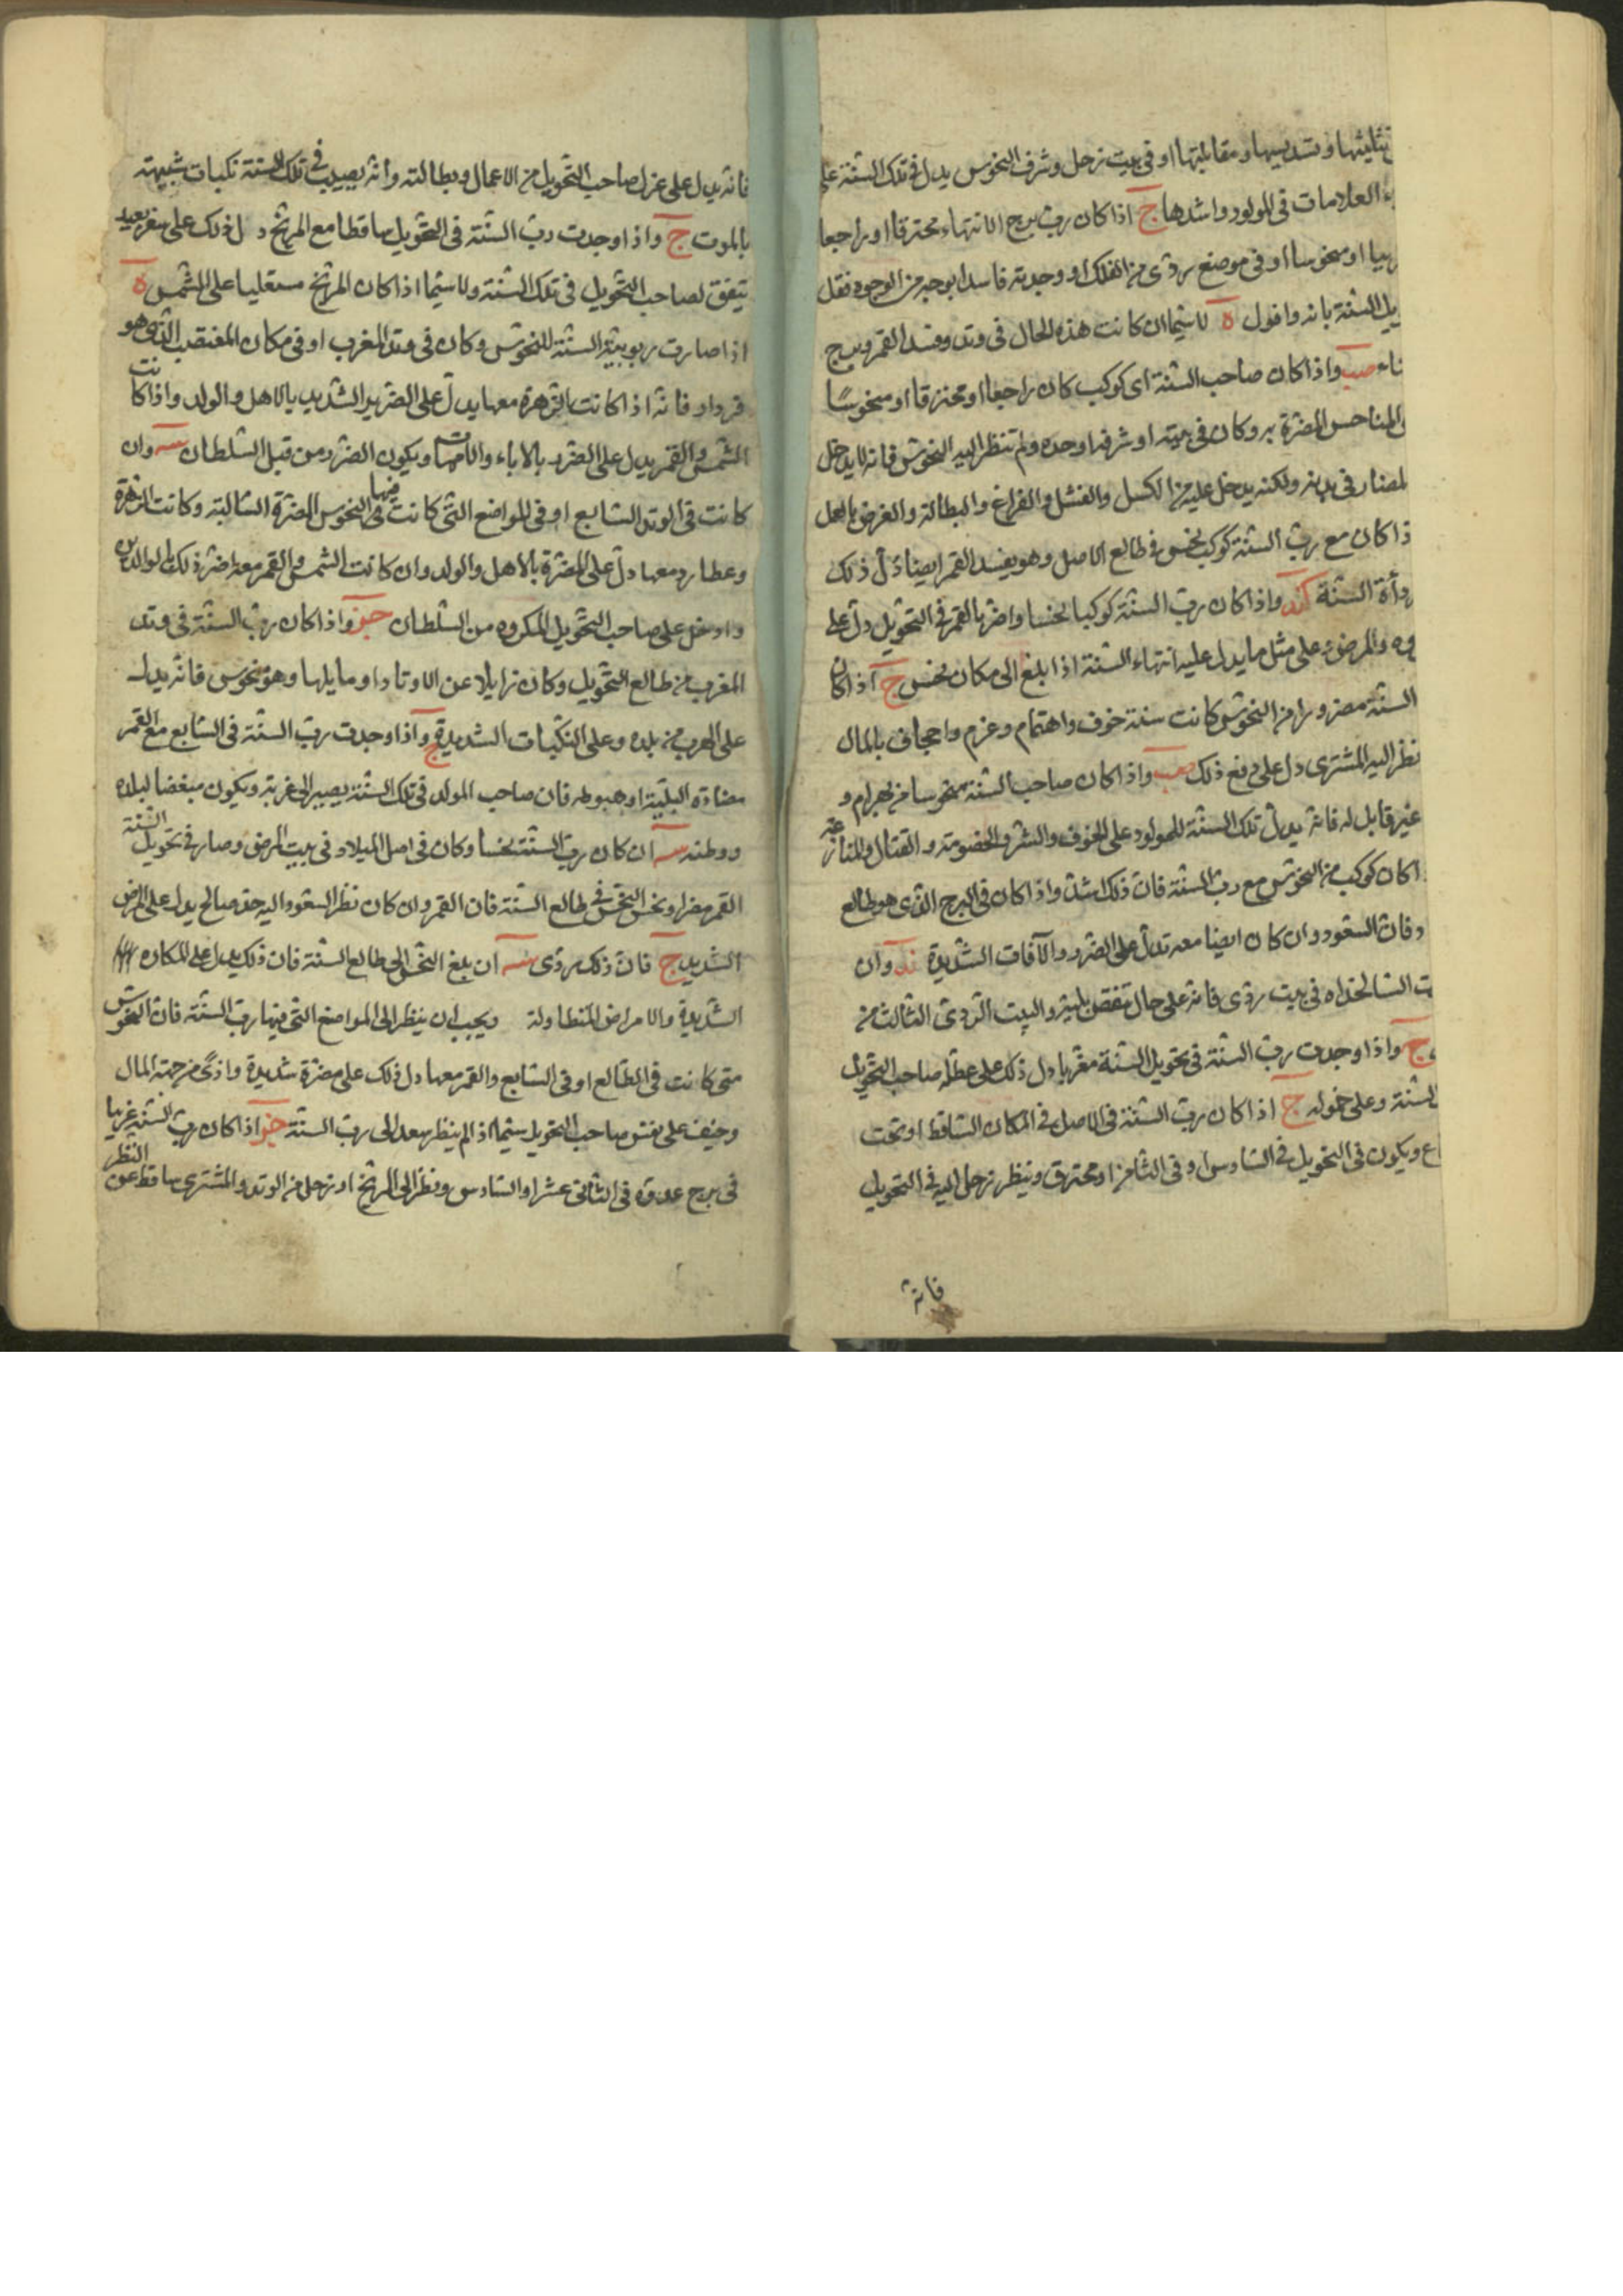 تثليثها وتسديسها ومقابلتها او فى بيت زحل وشرف النحوس يدل فى تلك السنة على
العلامات فى المولود واشدها ج اذا كان رب برج الانتهاء محترقا او راجعا
او منحوسا او فى موضع ردى من الفلك او وجدته فاسدا بوجه من الوجوه فقل
السنة بانه وافول ه لا سيما ان كانت هذه الحال فى وتد وفسد القمر وبرج
واذا كان صاحب السنة اى كوكب كان راجعا او محترقا او منحوسا
المناحس المضرة به وكان فى بيته او شرفه او حده ولم تنظر اليه النحوس فانه لا يدخل
المضار فى بدنه ولكنه يدخل عليه من الكسل والفشل والفراغ والبطالة والغرض بالعمل
ذا كان مع رب السنة كوكب نحس فى طالع الاصل وهو يفسد القمر ايضا دل ذلك
السنة كند واذا كان رب السنة كوكبا نحسا واضر بالقمر فى التحويل دل على
والمرض على مثل ما يدل عليه انتهاء السنة اذا بلغ الى مكان نحس ج اذا كان
السنة مضرورا من النحوس كانت سنة خوف واهتمام وغرم واجحاف بالمال
نظر اليه المشترى دل على دفع ذلك صب واذا كان صاحب السنة منحوسا من بهرام و
غير قابل له فانه يدل تلك السنة للمولود على الخوف والشر والخصومة والقتال والمنازعة
اكان كوكب من النحوس مع رب السنة فان ذلك اشد واذا كان فى البرج الذى هو طالع
وفات السعود وان كان ايضا معه تدل على الضرر والآفات الشديدة ند وان
السالخداه فى بيت ردى فانه على حال منقص والبيت الردى الثالث من
ج واذا وجدت رب السنة فى تحويل السنة مغربا دل ذلك على عطلة صاحب التحويل
السنة وعلى خموله ج اذا كان رب السنة فى الاصل فى المكان الساقط او تحت
ع ويكون فى التحويل فى السادس او فى الثامن او محترق وينظر زحل اليه فى التحويل
فانه
فانه يدل على عزل صاحب التحويل من الاعمال وبطالته وانه يصيب فى تلك السنة نكبات شبيهة
بالموت ج واذا وجدت رب السنة فى التحويل ساقطا مع المريخ دل ذلك على سفر بعيد
يتفق لصاحب التحويل فى تلك السنة ولا سيما اذا كان المريخ مستعليا على الشمس ه
اذا صارت ربوبية السنة للنحوس وكان فى وتد المغرب او فى مكان المغتصب الذى هو
فردار فانه اذا كانت الزهرة معها يدل على الضرر الشديد بالاهل والولد واذا كانت
الشمس والقمر يدل على الضرر بالاباء والامهات ويكون الضرر من قبل السلطان سه وان
كانت فى الوتد السابع او فى المواضع التى كانت فيها النحوس المضرة السالبة وكانت الزهرة
وعطارد معها دل على المضرة بالاهل والولد وان كانت الشمس والقمر معه اضر ذلك بالوالدين
وادخل على صاحب التحويل المكروه من السلطان خو واذا كان رب السنة فى وتد
المغرب من طالع التحويل وكان زايلا عن الاوتاد او ما يليها وهو منحوس فانه يدل
على الهرب من بلده وعلى النكبات الشديدة ج واذا وجدت رب السنة فى السابع مع القمر
مضادة البلية او هبوطه فان صاحب المولد فى تلك السنة يصير الى غربة ويكون مبغضا لبلده
ووطنه سه ان كان رب السنة نحسا وكان فى اصل الميلاد فى بيت المرض وصار فى تحويل السنة
القمر مضرا ونحس النحس فى طالع السنة فان القمر وان كان نظر السعود اليه حد صالح يدل على المرض
الشديد ج فان ذلك ردى سه ان بلغ النحس الى طالع السنة فان ذلك يدل على المكاره
الشديدة والامراض المتطاولة ويجب ان ينظر الى المواضع التى فيها رب السنة فان النحوس
متى كانت فى الطالع او فى السابع والقمر معها دل ذلك على مضرة شديدة واذى من جهة المال
وخيف على نفس صاحب التحويل سيما اذا لم ينظر سعد الى رب السنة خو اذا كان رب السنة غريبا
فى برج عدوه فى الثانى عشر او السادس ونظر الى المريخ او زحل من الوتد والمشترى ساقط عن النظر